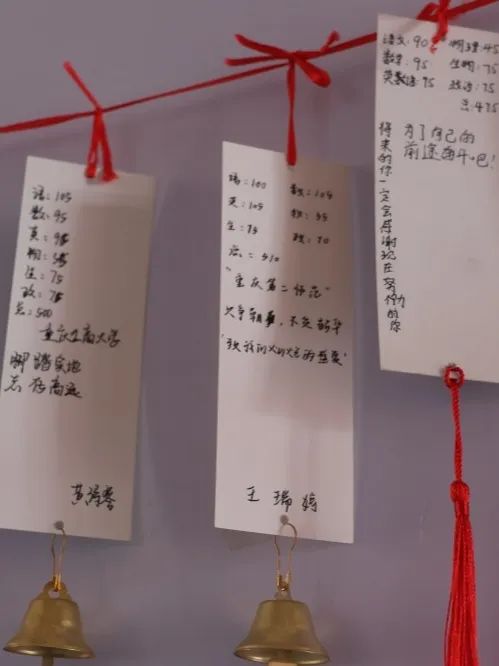 语:105
数:95
英:95
物:55
生:75
政:75
总:500
重庆工商大学
脚踏实地
志存高远
语:100 数:104
英:105 物:55
生:75 政:70
总:510
"重庆第二师范"
只争朝夕,不负韶华
王瑞婷
语文:90 物理:45
数学:95 生物:75
英语:95 政治:75
总:475
为了自己的
前途奋斗吧!
将来的你一定会感谢现在努力的你